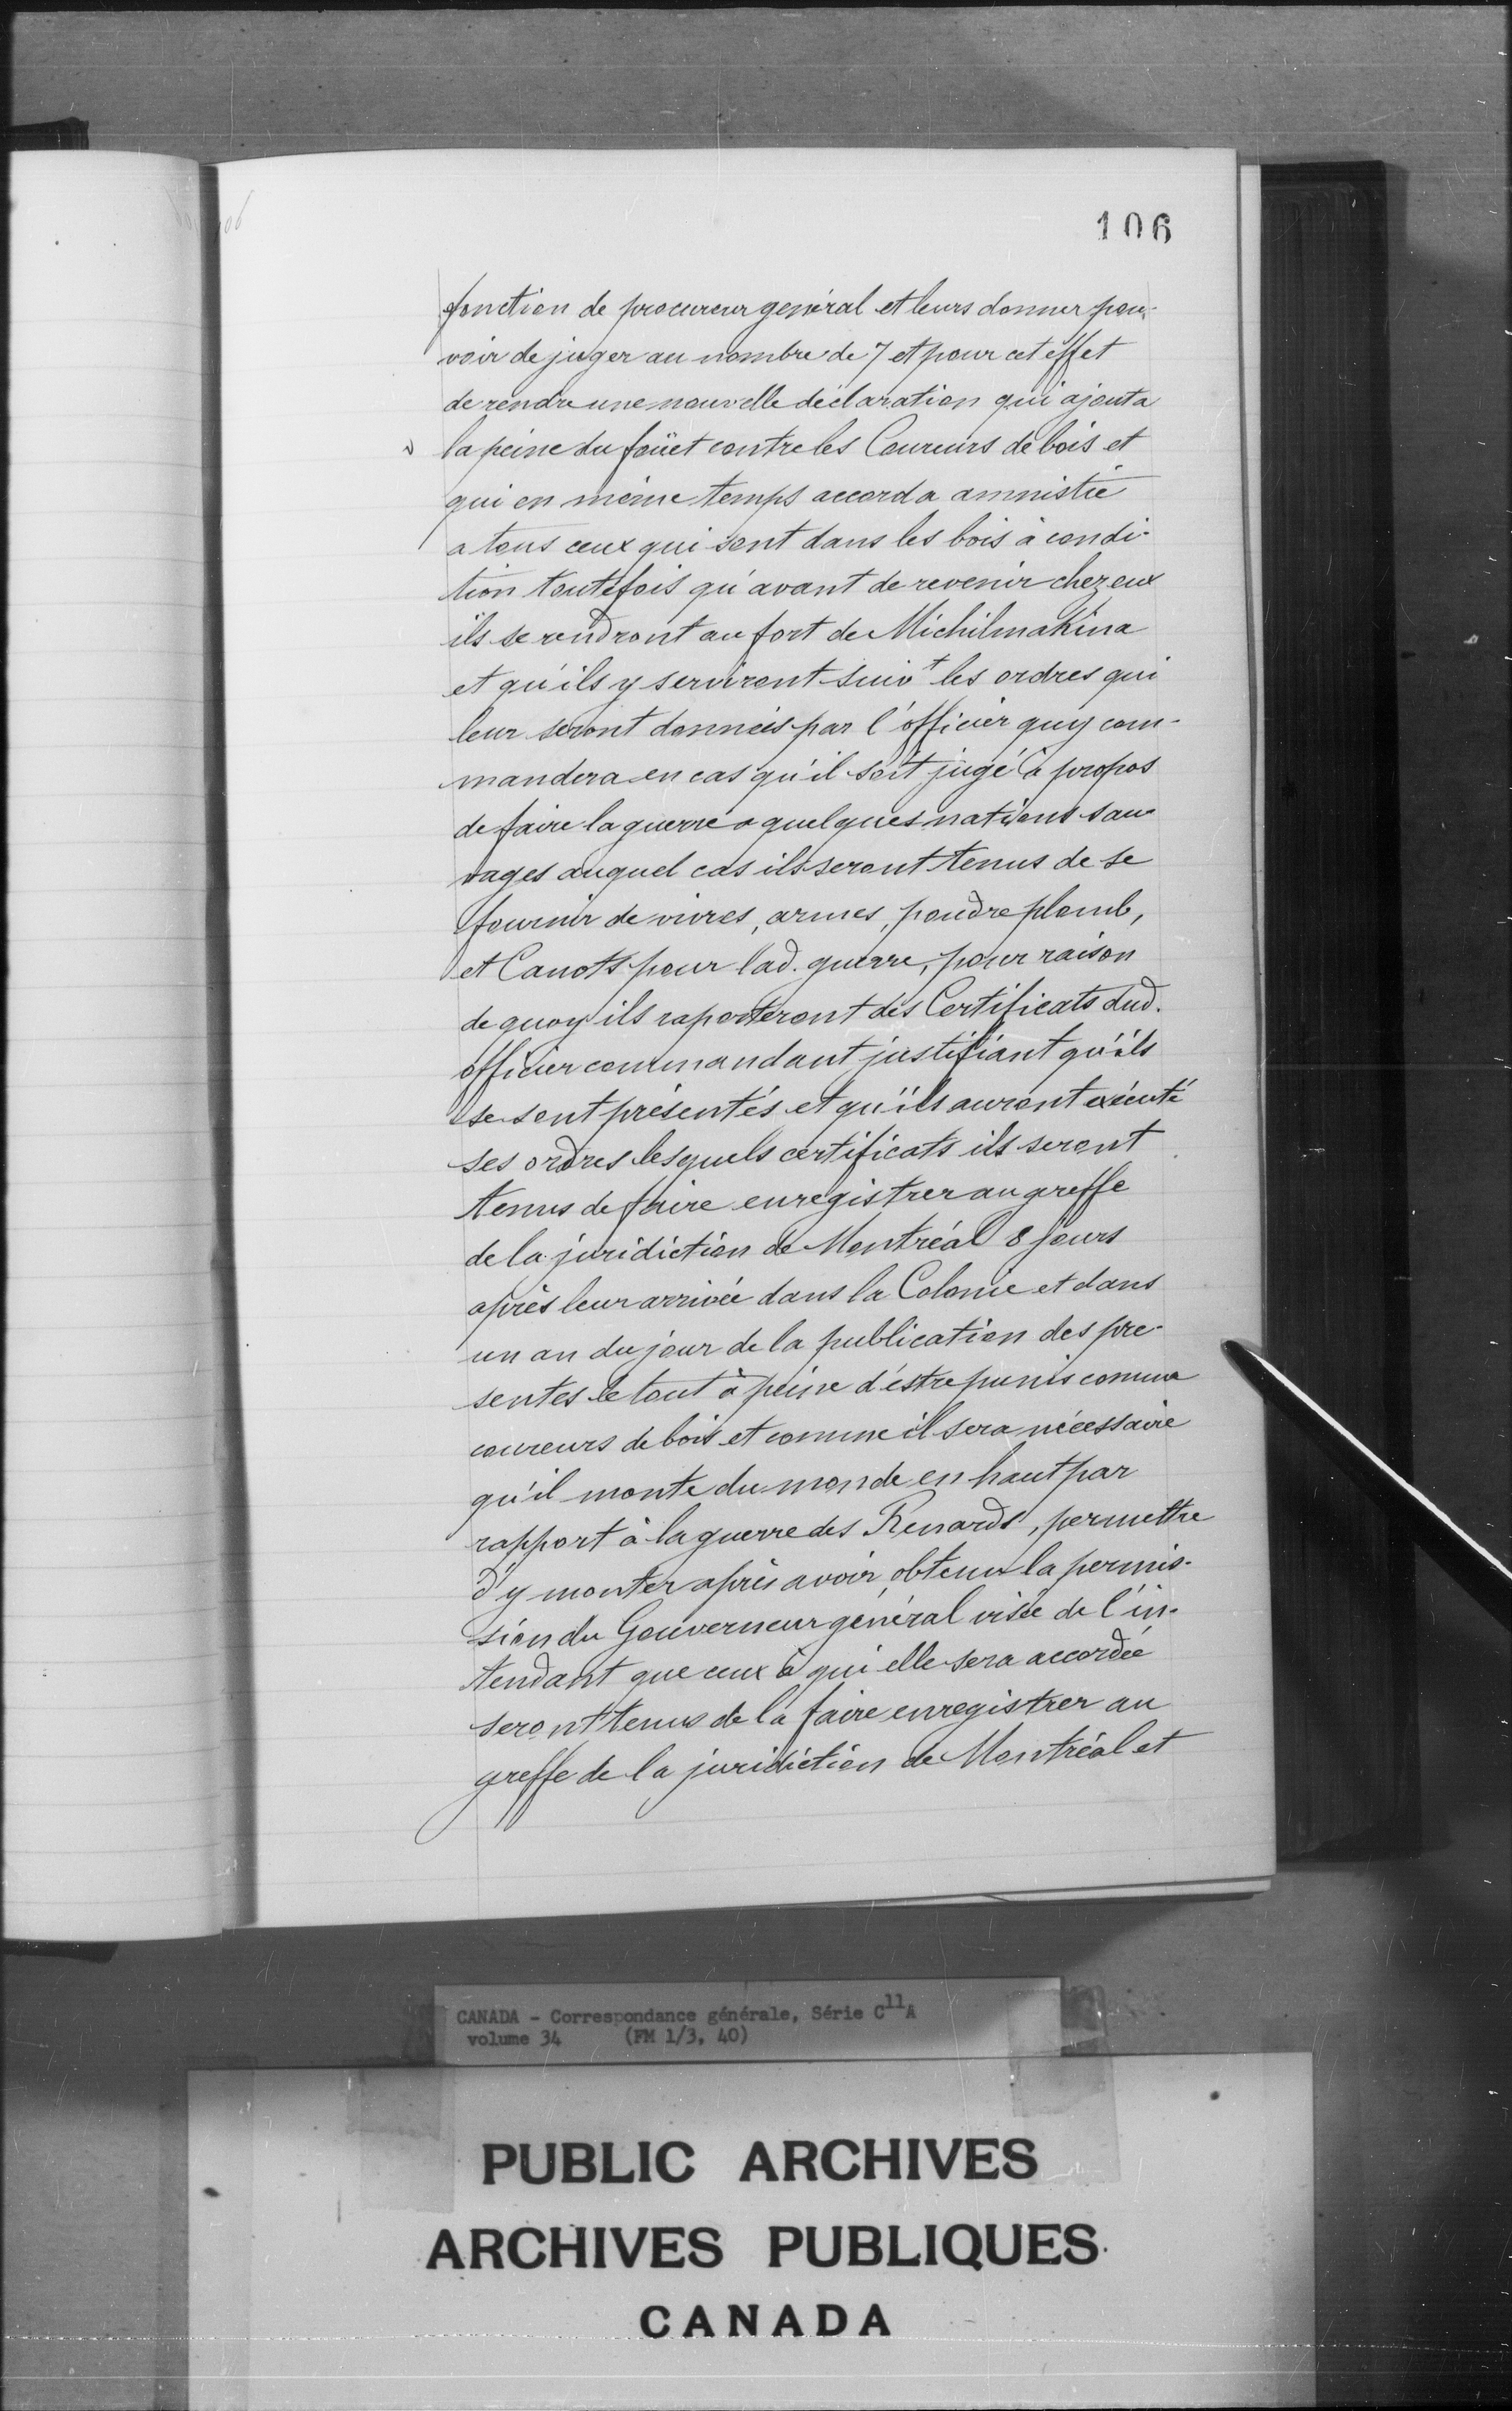 106
fonction de procureur général et leurs donner pou-
voir de juger au nombre de 7 et pour cet effet
de rendre une nouvelle déclaration qui ajouta
la peine du foüet contre les Coureurs de bois et
qui en même temps accorda amnistie
a tous ceux qui sont dans les bois à condi-
tion toutefois qu'avant de revenir chez eux
ils se rendront au fort de Michilmakina
et qu'ils y serviront suivt les ordres qui
leur seront donnés par l'officier quy com-
mandera en cas qu'il soit jugé à propos
de faire la guerre a quelques nations sau-
vages auquel cas ils seront tenus de se
fournir de vivres, armes, poudre plomb,
et Canots pour lad. guerre, pour raison
de quoy ils raporteront des Certificats dud.
officier commandant justifiant qu'ils
se sont présentés et qu'ils auront exécuté
ses ordres lesquels certificats ils seront
tenus de faire enregistrer au greffe
de la juridiction de Montréal 8 jours
après leur arrivée dans la Colonie et dans
un an du jour de la publication des pre-
sentes le tout à peine d'éstre punis comme
coureurs de bois et comme il sera nécessaire
qu'il monte du monde en haut par
rapport à la guerre des Renards, permettre
d'y monter après avoir obtenu la permis-
sion du Gouverneur général visée de l'in-
tendant que ceux à qui elle sera accordée
seront tenus de la faire enregistrer au
greffe de la juridiction de Montréal et
CANADA - Correspondance générale, Série C11A
volume 34 (FM 1/3, 40)
PUBLIC ARCHIVES
ARCHIVES PUBLIQUES
CANADA